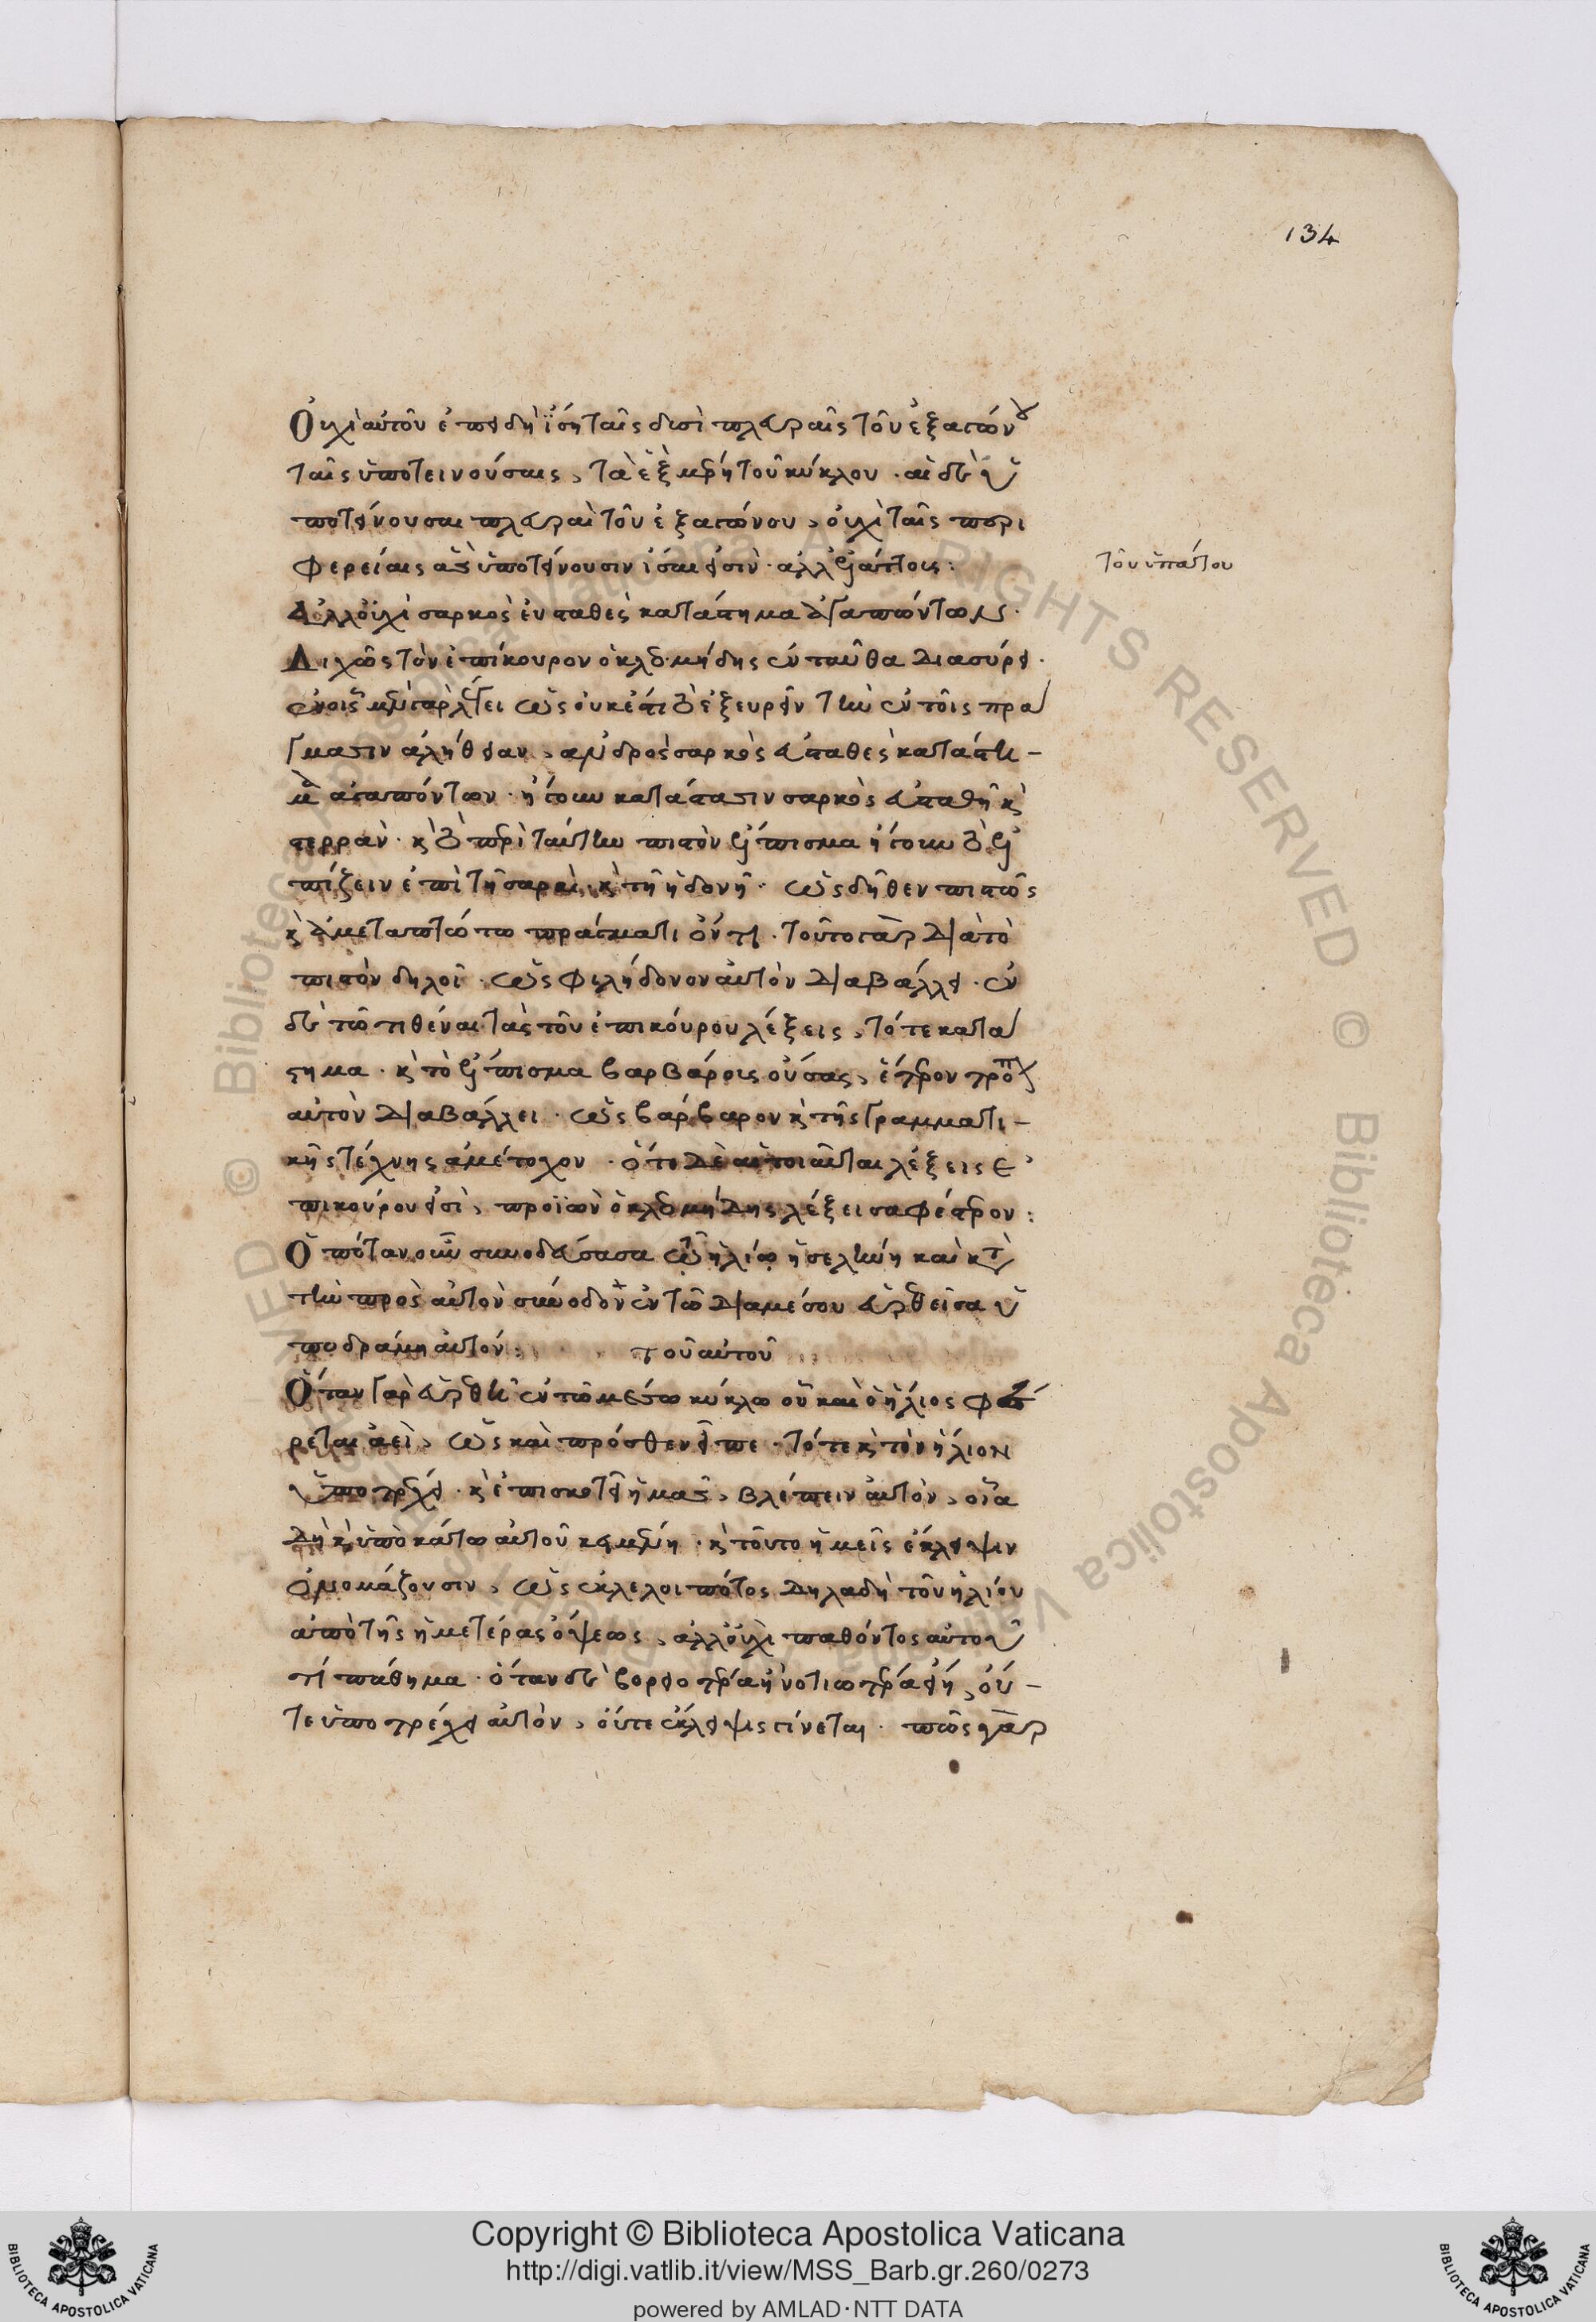 134
Οὐχὶ αὐτοῦ ἐπειδὴ ἴση ταῖς δυσὶ πλευραῖς τοῦ ἑξαγώνου
ταῖς ὑποτεινούσαις, τὰ ἓξ μέρη τοῦ κύκλου. αἱ δὲ ὑ
ποτείνουσαι πλευραὶ τοῦ ἑξαγώνου, οὐχὶ ταῖς περι
φερείαις ἃς ὑποτείνουσιν ἴσαι εἰσὶν. ἀλλ' ἐλάττους:
τοῦ ὑπάτου
Ἀλλ' οὐχὶ σαρκὸς εὐσταθὲς κατάστημα ἀγαπῶντος.
Διχῶς τὸν ἐπίκουρον ὁ κλεομήδης ἐνταῦθα διασύρει.
ὡς οὐκ ἔστι τὸ ἐξευρεῖν τὴν ἐν τοῖς πρά
γμασιν ἀλήθειαν, ἀνδρὸς σαρκὸς εὐσταθὲς κατάστη-
μα ἀγαπῶντων. ἤγουν κατάστασιν σαρκὸς εὐσταθῆ καὶ
στερράν. καὶ τὸ περὶ ταύτην πιστὸν ἔλπισμα ἤγουν τὸ ἐλ
πίζειν ἐπὶ τῇ σαρκὶ καὶ τῇ ἡδονῇ. ὡς δῆθεν πιστῶς
καὶ ἀμεταπτώτω πράγματι ὄντι. τοῦτο γὰρ διὰ τὸ
πιστὸν δηλοῖ. ὡς φιλήδονον αὐτὸν διαβάλλει. ἐν
δὲ τῶ τιθέναι τὰς τοῦ ἐπικούρου λέξεις, τό τε κατά
στημα. καὶ τὸ ἔλπισμα βαρβάροις οὔσας, ἕτερον τρόπον
αὐτὸν διαβάλλει. ὡς βάρβαρον καὶ τῆς γραμματι-
κῆς τέχνης ἀμέτοχον. ὅτι δὲ αἱ τοιαῦται λέξεις ἐ
πικούρου εἰσὶ, προϊὼν ὁ κλεομήδης λέξει σαφέστερον:
Ὁπόταν οὖν συνοδεύσασα τῶ ἡλίω ἡ σελήνη καὶ κατὰ
τὴν πρὸς αὐτὸν σύνοδον ἐν τῶ διαμέσου εὑρεθεῖσα ὑ
ποδράμη αὐτόν: τοῦ αὐτοῦ
Ὅταν γὰρ εὑρεθῆ ἐν τῶ μέσω κύκλω οὗ καὶ ὁ ἥλιος φέ
ρεται ἀεὶ, ὡς καὶ πρόσθεν εἶπε. τότε καὶ τὸν ἥλιον
ὑποτρέχει. καὶ ἐπισκοτεῖ ἡμᾶς, βλέπειν αὐτὸν, οἷα
δὴ καὶ ὑποκάτω αὐτοῦ κειμένη. καὶ τοῦτο ἡμεῖς ἔκλειψιν
ὀνομάζουσιν, ὡς ἐκλελοιπότος δηλαδὴ τοῦ ἡλίου
ἀπὸ τῆς ἡμετέρας ὄψεως, ἀλλ' οὐχὶ παθόντος αὐτοῦ
τί πάθημα. ὅταν δὲ βορειοτέρα ἢ νοτιωτέρα εἴη, οὔ-
τε ὑποτρέχει αὐτὸν, οὔτε ἔκλειψις γίνεται. πῶς γὰρ
Copyright © Biblioteca Apostolica Vaticana
http://digi.vatlib.it/view/MSS_Barb.gr.260/0273
powered by AMLAD·NTT DATA